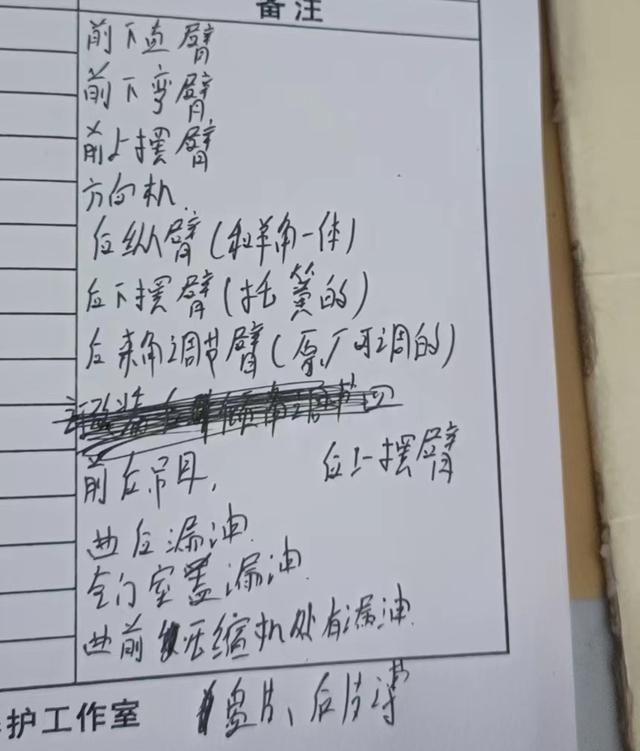 备注
前下直臂
前下弯臂
前上摆臂
方向机.
后纵臂(和羊角一体)
后下摆臂(托簧的)
后束角调节臂(原厂可调的)
前后吊耳,
后上摆臂
曲后漏油
气门室盖漏油.
曲前 压缩机处有漏油.
护工作室
盘片、后片薄